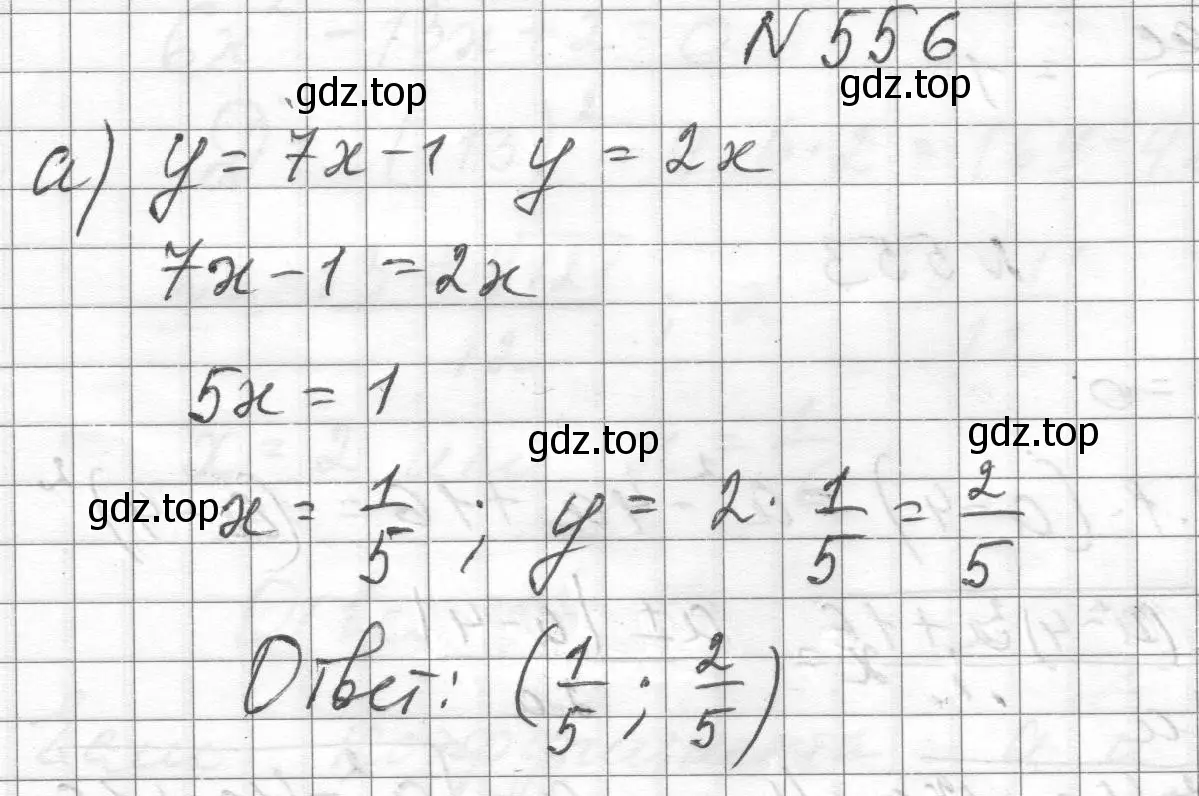 N 556
gdz.top gdz.top
а) y = 7x - 1 y = 2x
7x - 1 = 2x
5x = 1
gdz.top gdz.top
gdz.top x = 1/5 ; y = 2 · 1/5 = 2/5
Ответ: (1/5 ; 2/5)